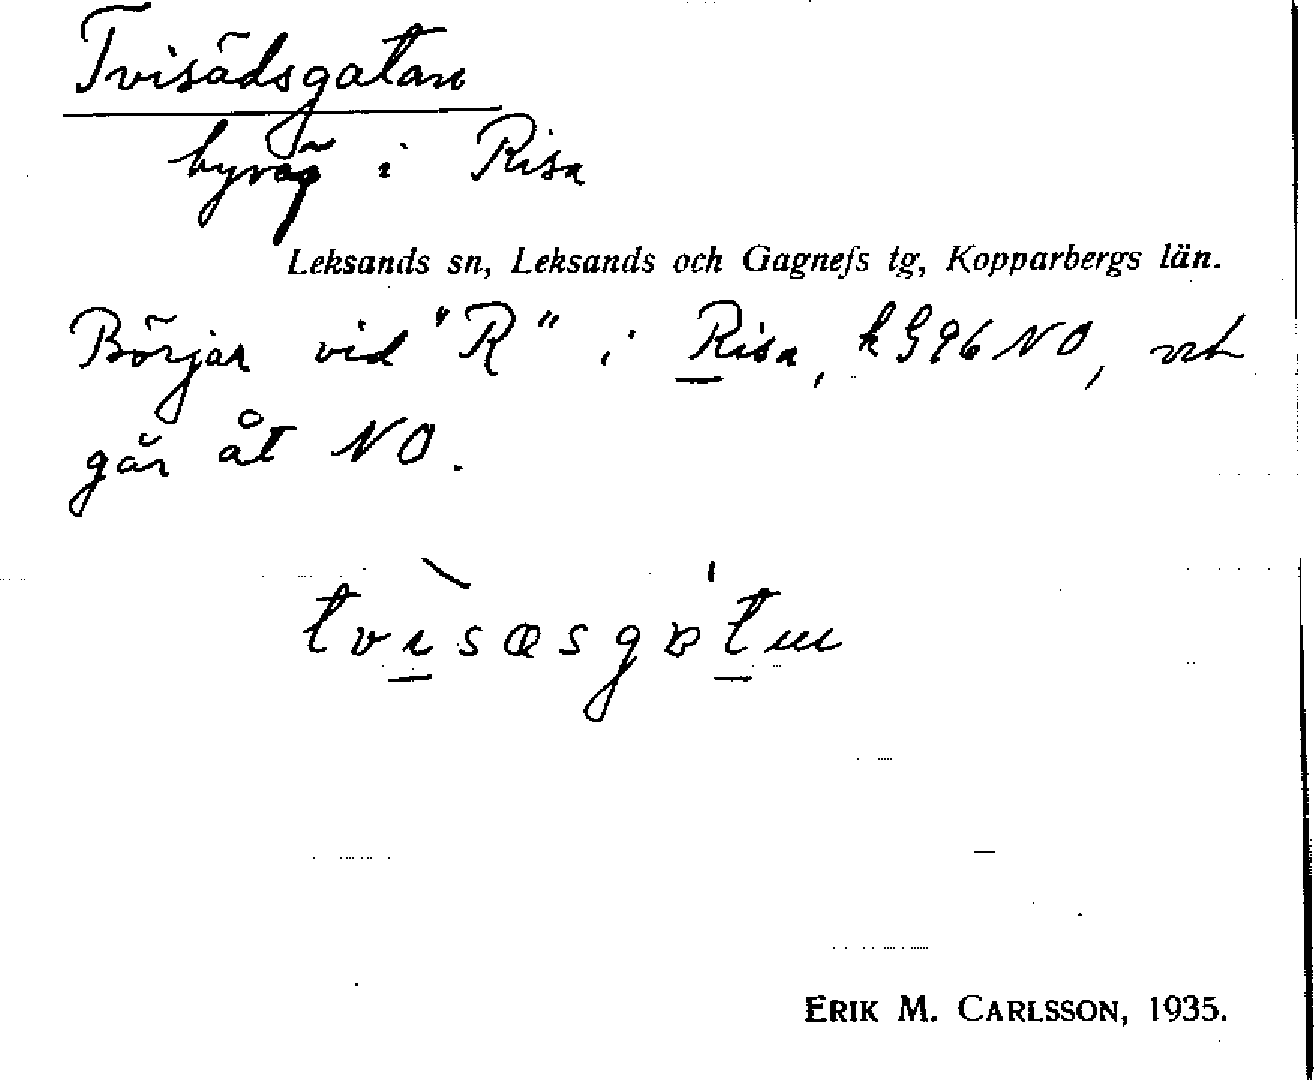 Tvisädsgatan
byväg i Risa
Leksands sn, Leksands och Gagnefs tg, Kopparbergs län.
Börjar vid "R" i Risa, k G96 NO, och
går åt NO.
tvisæsgatu
ERIK M. CARLSSON, 1935.